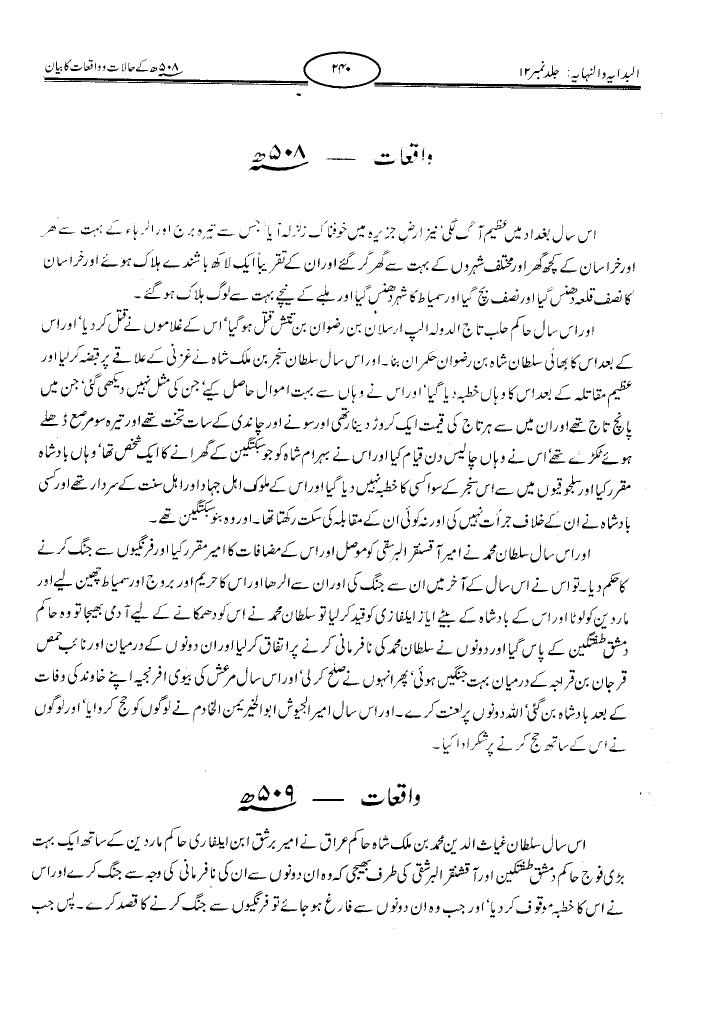 البدایہ والنہایہ: جلد نمبر ۱۲
۲۴۰
۵۰۸ھ کے حالات و واقعات کا بیان
واقعات — ۵۰۸ھ
اس سال بغداد میں عظیم آگ لگی' نیز ارض جزیرہ میں خوفناک زلزلہ آیا' جس سے تیرہ برج اور الرہاء کے بہت سے گھر
اور خراسان کے کچھ گھر اور مختلف شہروں کے بہت سے گھر گر گئے اور ان کے تقریباً ایک لاکھ باشندے ہلاک ہوئے اور خراسان
کا نصف قلعہ دھنس گیا اور نصف بچ گیا اور سمیاط کا شہر دھنس گیا اور ملبے کے نیچے بہت سے لوگ ہلاک ہو گئے۔
اور اس سال حاکم حلب تاج الدولہ الپ ارسلان بن رضوان بن تتش قتل ہو گیا' اس کے غلاموں نے قتل کر دیا' اور اس
کے بعد اس کا بھائی سلطان شاہ بن رضوان حکمران بنا۔ اور اس سال سلطان سنجر بن ملک شاہ نے غزنی کے علاقے پر قبضہ کر لیا اور
عظیم مقاتلہ کے بعد اس کا وہاں خطبہ دیا گیا' اور اس نے وہاں سے بہت اموال حاصل کیے' جن کی مثل نہیں دیکھی گئی' جن میں
پانچ تاج تھے اور ان میں سے ہر تاج کی قیمت ایک کروڑ دینار تھی اور سونے اور چاندی کے سات تخت تھے اور تیرہ سو مرصع ڈھلے
ہوئے ٹکڑے تھے' اس نے وہاں چالیس دن قیام کیا اور اس نے بہرام شاہ کو جو سبکتگین کے گھرانے کا ایک شخص تھا' وہاں بادشاہ
مقرر کیا اور سلجوقیوں میں سے اس سنجر کے سوا کسی کا خطبہ نہیں دیا گیا اور اس کے ملوک اہل جہاد اور اہل سنت کے سردار تھے اور کسی
بادشاہ نے ان کے خلاف جرأت نہیں کی اور نہ کوئی ان کے مقابلہ کی سکت رکھتا تھا۔ اور وہ بنو سبکتگین تھے۔
اور اس سال سلطان محمد نے امیر آقسنقر البرسقی کو موصل اور اس کے مضافات کا امیر مقرر کیا اور فرنگیوں سے جنگ کرنے
کا حکم دیا۔ تو اس نے اس سال کے آخر میں ان سے جنگ کی اور ان سے الرھا اور اس کا حریم اور بروج اور سمیاط چھین لیے اور
ماردین کو لوٹا اور اس کے بادشاہ کے بیٹے ایاز ایلغازی کو قید کر لیا تو سلطان محمد نے اس کو دھمکانے کے لیے آدمی بھیجا تو وہ حاکم
دمشق طغتگین کے پاس گیا اور دونوں نے سلطان محمد کی نافرمانی کرنے پر اتفاق کر لیا اور ان دونوں کے درمیان اور نائب حمص
قرجان بن قراجہ کے درمیان بہت جنگیں ہوئی' پھر انہوں نے صلح کر لی' اور اس سال مرعش کی بیوی افرنجیہ اپنے خاوند کی وفات
کے بعد بادشاہ بن گئی' اللہ دونوں پر لعنت کرے۔ اور اس سال امیر الجیوش ابوالخیر یمن الخادم نے لوگوں کو حج کروایا' اور لوگوں
نے اس کے ساتھ حج کرنے پر شکر ادا کیا۔
واقعات — ۵۰۹ھ
اس سال سلطان غیاث الدین محمد بن ملک شاہ حاکم عراق نے امیر برشق ابن ایلغاری حاکم ماردین کے ساتھ ایک بہت
بڑی فوج حاکم دمشق طغتگین اور آقشنقر البرشقی کی طرف بھیجی کہ وہ ان دونوں سے ان کی نافرمانی کی وجہ سے جنگ کرے اور اس
نے اس کا خطبہ موقوف کر دیا' اور جب وہ ان دونوں سے فارغ ہو جائے تو فرنگیوں سے جنگ کرنے کا قصد کرے۔ پس جب